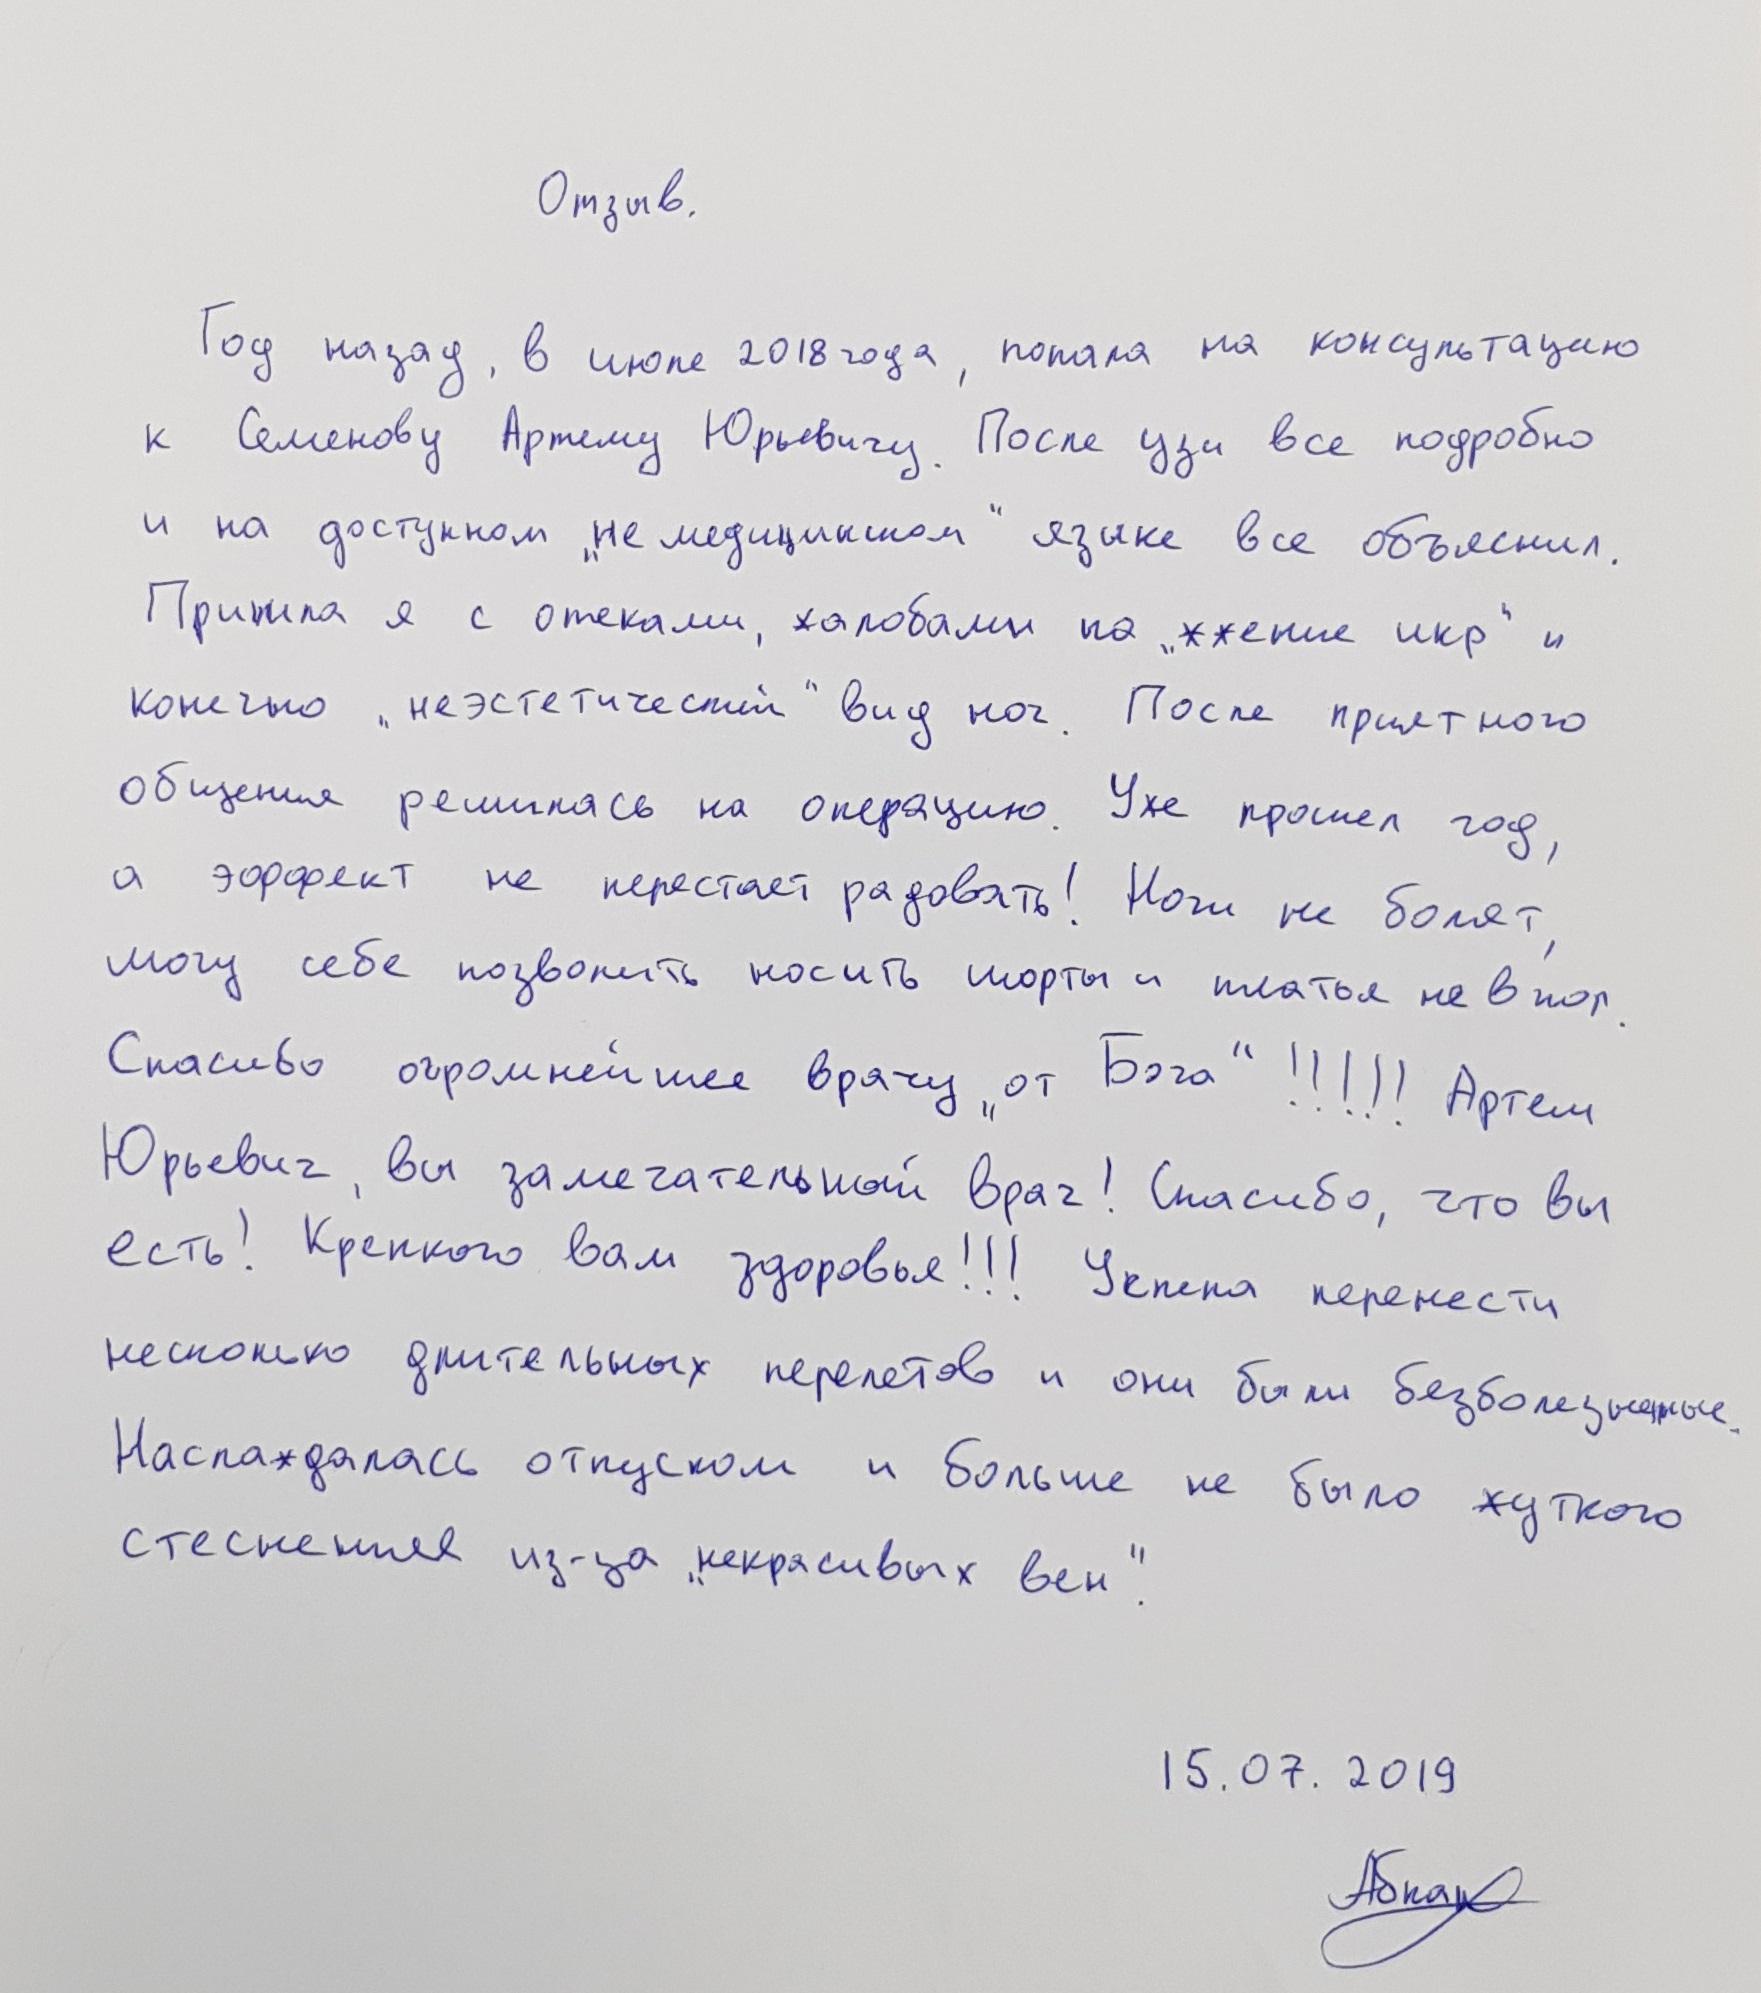 Отзыв.
Год назад, в июле 2018 года, попала на консультацию
к Семенову Артему Юрьевичу. После узи все подробно
и на доступном „не медицинском“ языке все объяснил.
Пришла я с отеками, жалобами на „жжение икр“ и
конечно „неэстетический“ вид ног. После приятного
общения решилась на операцию. Уже прошел год,
а эффект не перестает радовать! Ноги не болят,
могу себе позволить носить шорты и платья не в пол.
Спасибо огромнейшее врачу „от Бога“!!!!! Артем
Юрьевич, вы замечательный врач! Спасибо, что вы
есть! Крепкого вам здоровья!!! Успела перенести
несколько длительных перелетов и они были безболезненные.
Наслаждалась отпуском и больше не было жуткого
стеснения из-за „некрасивых вен“.
15.07.2019